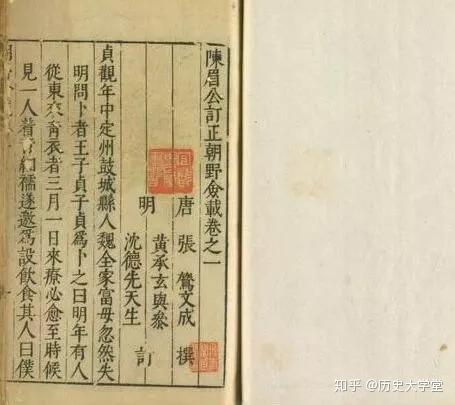 陳眉公訂正朝野僉載卷之一
唐 張 鷟文成 撰
明 黃承玄與參
沈德先天生 訂
貞觀年中定州鼓城縣人魏全家富母忽然失
明問卜者王子貞子貞爲卜之曰明年有人
從東來青衣者三月一日來療必愈至時候
見一人着青紬襦遂邀爲設飲食其人曰僕
知乎 @历史大学堂